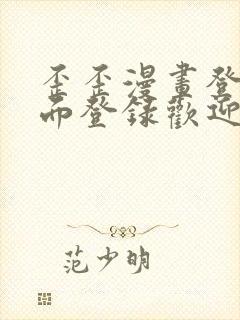 歪歪漫畫登
而登錄歡迎
范少明